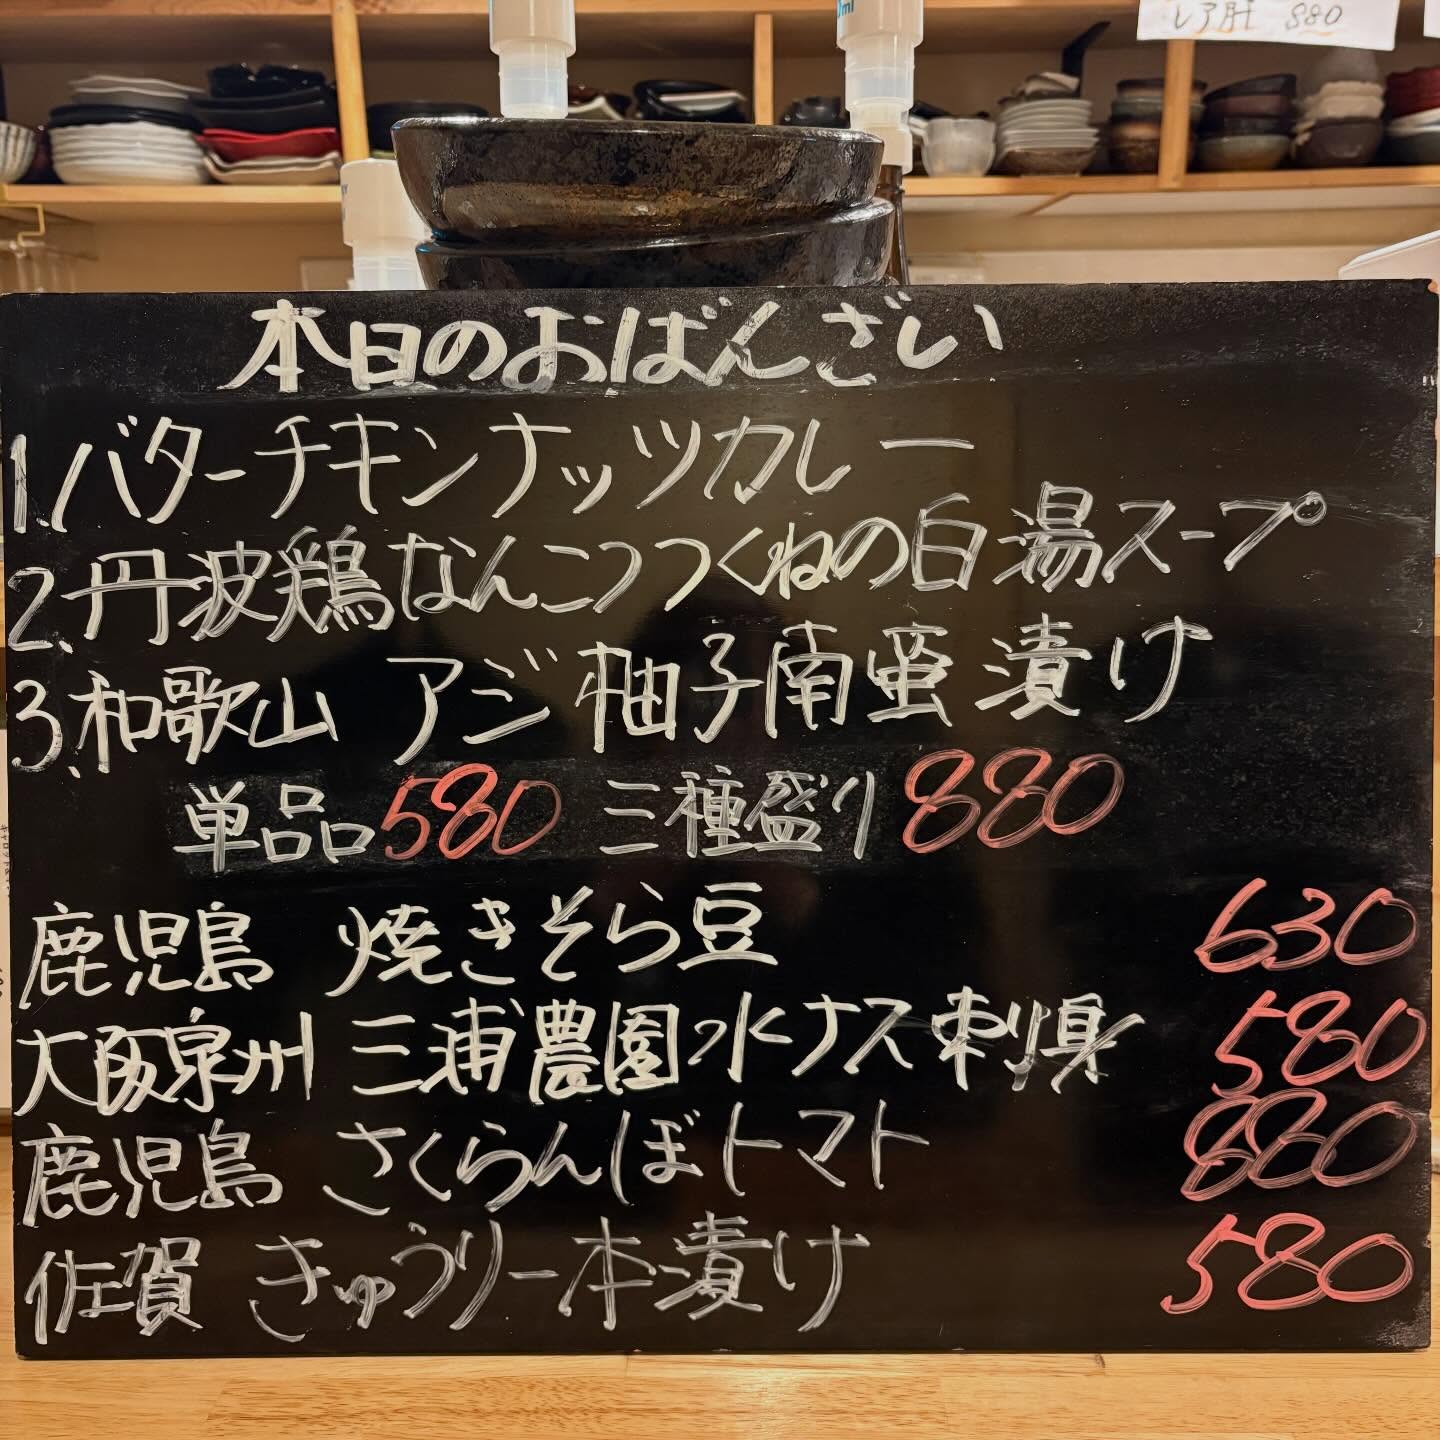 レア肝 880
本日のおばんざい
1.バターチキンナッツカレー
2.丹波鶏なんこつつくねの白湯スープ
3.和歌山 アジ柚子南蛮漬け
単品580 三種盛り880
鹿児島 焼きそら豆 630
大阪泉州 三浦農園水ナス刺身 580
鹿児島 さくらんぼトマト 680
佐賀 きゅうり一本漬け 580